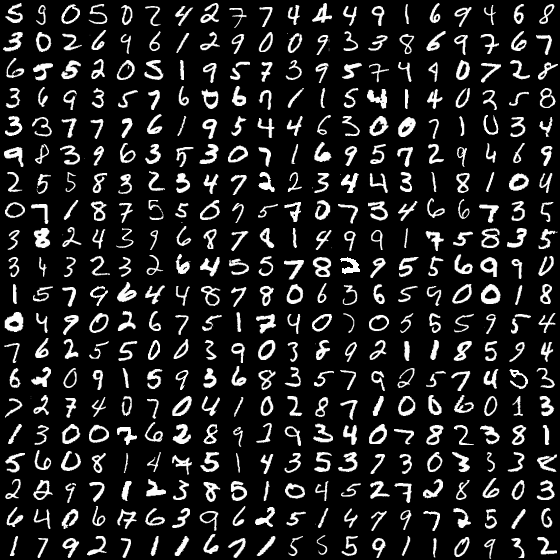 5 9 0 5 0 7 4 2 7 7 4 4 4 9 1 6 9 4 6 8
3 0 2 6 9 6 1 2 9 0 0 9 3 3 8 6 9 7 6 7
6 5 5 2 0 5 1 9 5 7 3 9 5 7 4 4 0 7 2 8
3 6 9 3 5 7 6 0 6 7 1 1 5 4 1 4 0 2 5 8
3 3 7 7 7 6 1 9 5 4 4 6 3 0 0 7 1 0 3 4
9 8 3 9 6 3 5 3 0 7 1 6 9 5 7 2 9 4 6 9
2 5 5 8 3 2 3 4 7 2 2 3 4 4 3 1 8 1 0 4
0 7 1 8 7 5 5 0 7 5 7 0 7 3 4 6 6 7 3 5
3 8 2 4 3 9 6 8 7 8 1 4 9 9 1 7 5 8 3 5
3 4 3 2 3 2 6 4 5 5 7 8 2 9 5 5 6 9 9 0
1 5 7 9 6 4 4 8 7 8 0 6 3 6 5 9 0 0 1 8
0 4 9 0 2 6 7 5 1 7 4 0 0 5 5 5 9 5 4
7 6 2 5 5 0 0 3 9 0 3 8 9 2 1 1 8 5 9 4
6 2 0 9 1 5 9 3 6 8 3 5 7 9 2 5 7 4 5 3
7 2 7 4 0 7 0 4 1 0 2 8 7 1 0 0 6 0 1 3
1 3 0 0 7 6 2 8 9 2 9 3 4 0 7 8 2 3 8 1
5 6 0 8 1 4 5 1 4 3 5 3 7 3 0 3 3
2 2 9 7 1 2 3 8 5 1 0 4 5 2 7 2 8 6 0 3
6 4 0 6 7 6 3 9 6 2 5 1 4 7 9 7 2 5 1 0
1 7 9 2 7 1 1 6 7 1 5 5 5 9 1 1 0 9 3 2